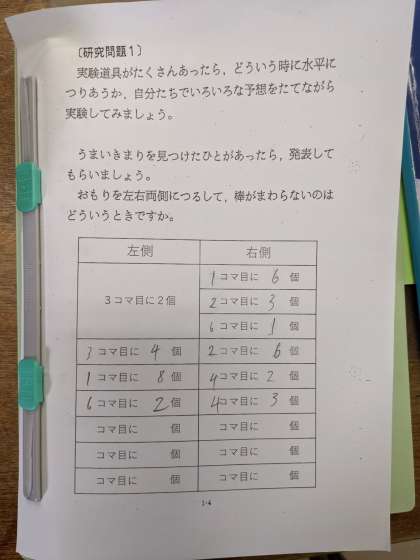 〔研究問題1〕
実験道具がたくさんあったら，どういう時に水平に
つりあうか，自分たちでいろいろな予想をたてながら
実験してみましょう。
うまいきまりを見つけたひとがあったら，発表して
もらいましょう。
おもりを左右両側につるして，棒がまわらないのは
どういうときですか。
左側 右側
3コマ目に2個 1コマ目に 6 個
2コマ目に 3 個
6コマ目に 1 個
3コマ目に 4 個 2コマ目に 6 個
1コマ目に 8 個 4コマ目に 2 個
6コマ目に 2 個 4コマ目に 3 個
コマ目に 個 コマ目に 個
コマ目に 個 コマ目に 個
コマ目に 個 コマ目に 個
1-4